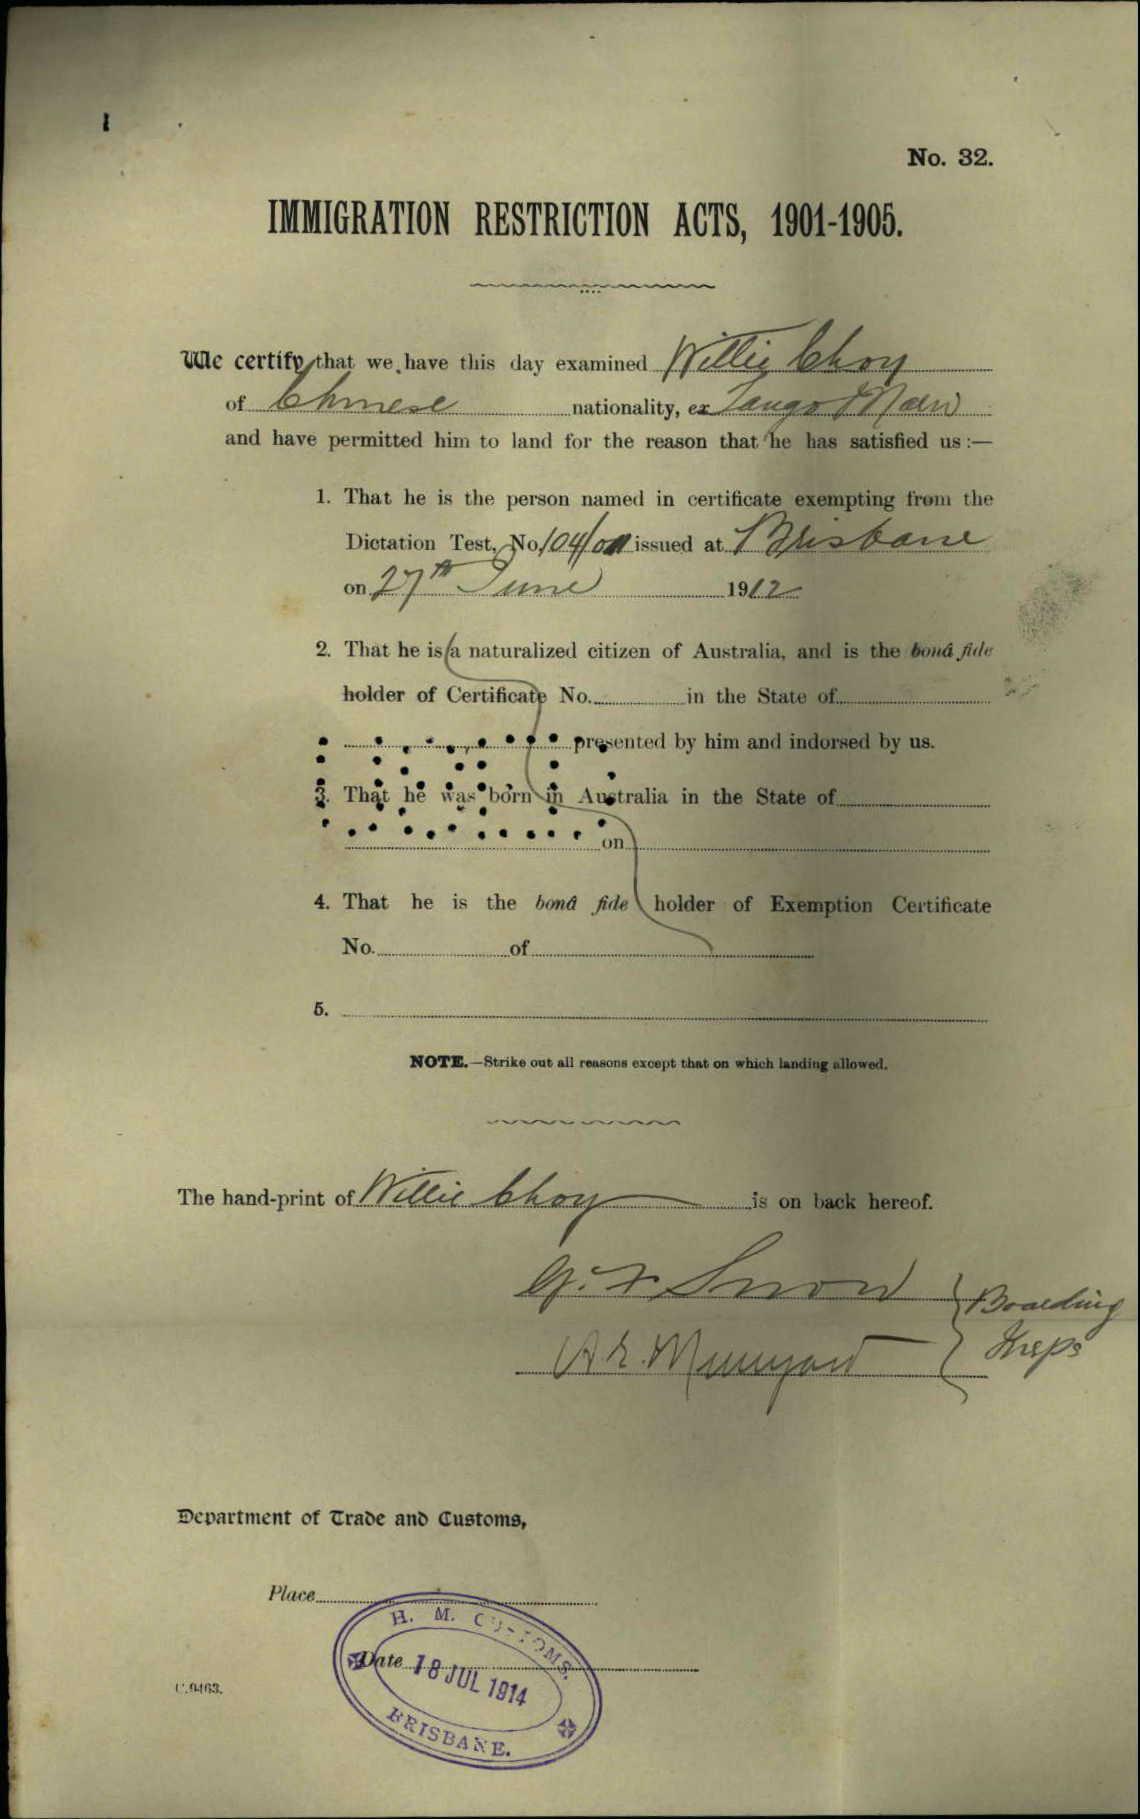 No. 32.
IMMIGRATION RESTRICTION ACTS, 1901-1905.
We certify that we have this day examined Willie Choy
of Chinese nationality, ex Tango Maru
and have permitted him to land for the reason that he has satisfied us :—
1. That he is the person named in certificate exempting from the
Dictation Test, No. 104/ issued at Brisbane
on 27th June 1912
2. That he is a naturalized citizen of Australia, and is the bonâ fide
holder of Certificate No. in the State of
presented by him and indorsed by us.
3. That he was born in Australia in the State of
on
4. That he is the bonâ fide holder of Exemption Certificate
No. of
5.
NOTE.—Strike out all reasons except that on which landing allowed.
The hand-print of Willie Choy is on back hereof.
Snow
Boarding
A. E.
Insps
Department of Trade and Customs,
Place
H. M. CUSTOMS.
Date 18 JUL 1914
C.9463.
BRISBANE.